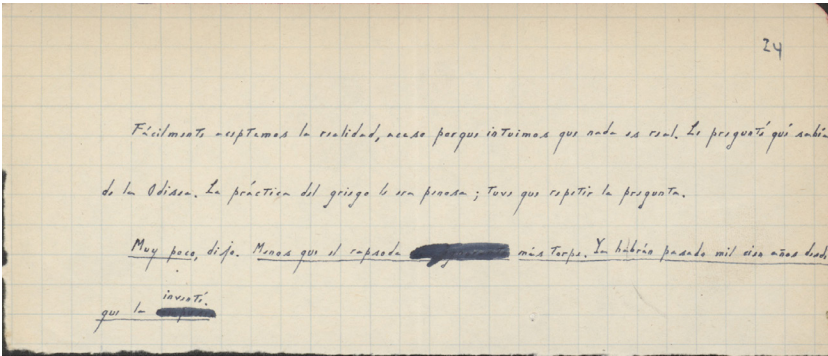 24
Fácilmente aceptamos la realidad, acaso porque intuimos que nada es real. Le pregunté qué sabía
de la Odisea. La práctica del griego le era penosa; tuve que repetir la pregunta.
Muy poco, dijo. Menos que el rapsoda más torpe. Ya habrán pasado mil cien años desde
inventé.
que la